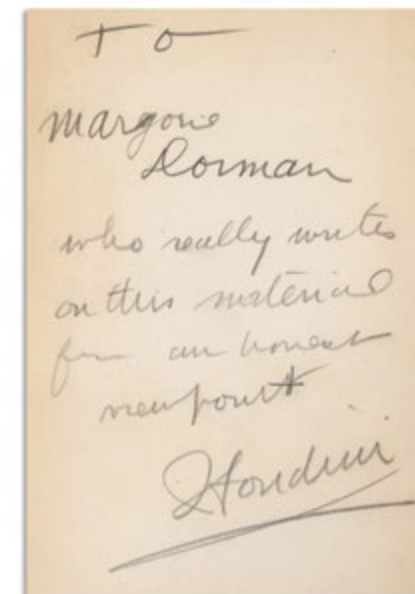 To
Margorie
Dorman
who really writes
on this material
from an honest
viewpoint
Houdini